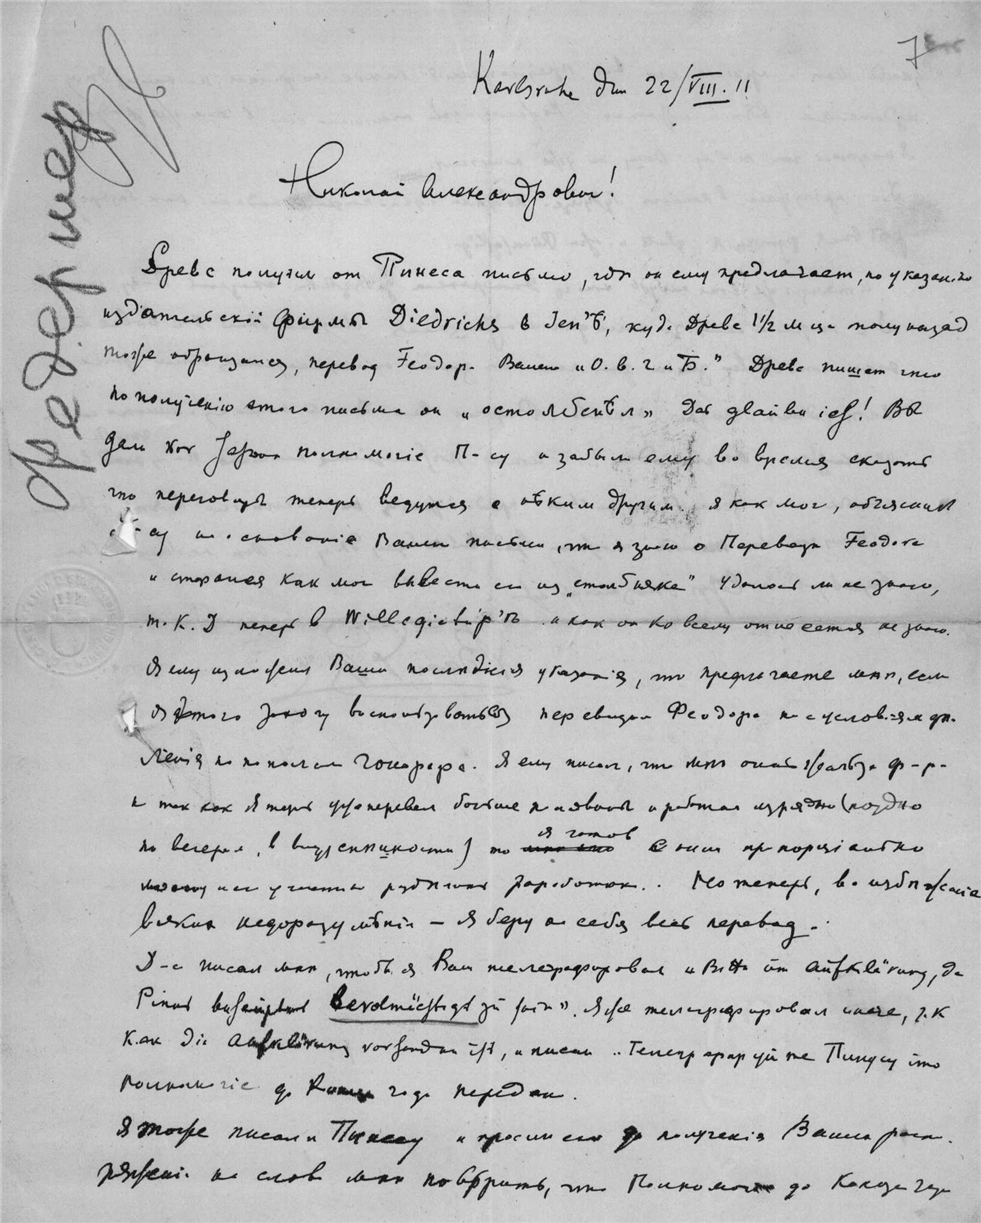 7
Karlsruhe den 22/VIII. 11
Федермер
Николай Александрович!
Древс получил от Пинеса письмо, где он ему предлагает, по указанію
издательской фирмы Diedrichs в Іен'ѣ, куда Древс 1½ м-ца тому назад
тоже обращался, перевод Feодор. Вашего „О. в. Ч и Б." Древс пишет что
по полученію этого письма он „остолбенѣл" Das glaub ich! Вы
дали полномочіе П-су и забыли ему во время сказать
что переговоры теперь ведутся с нѣким другим. Я как мог, объяснил
на основаніе Ваших писем, что я знаю о Переводе Feодора
и старался как мог вывести его из „столбняка" Удалось ли не знаю,
т. к. Д теперь в и как он ко всему отнесется не знаю.
Я ему изложил Ваши последнія указанія, что предлагаете мнѣ, если
я этого захочу воспользоваться переводом Феодора на условіях дѣ-
ленія по полам гонорара. Я ему писал, что мнѣ очень жалко Ф-р-
и так как я теперь уже перевел больше половины и работал изрядно (поздно
по вечерам, в) то я готов с ним пропорціонально
заработок. Но теперь, во избѣжаніе
всяких недоразумѣній – я беру на себя весь перевод.
Д-с писал мнѣ, чтобы я Вам телеграфировал „Bitte um Aufklärung, da
Pines behauptet bevolmächtigt zu sein". Я же телеграфировал иначе, т. к
как die Aufklärung vorhanden ist, и писал „Телеграфируйте Пинусу что
полномочіе до года передан.
Я тоже писал и Пинесу и просил его до полученія Ваших распо-
ряженій на слово мнѣ повѣрить, что Полномочіе до